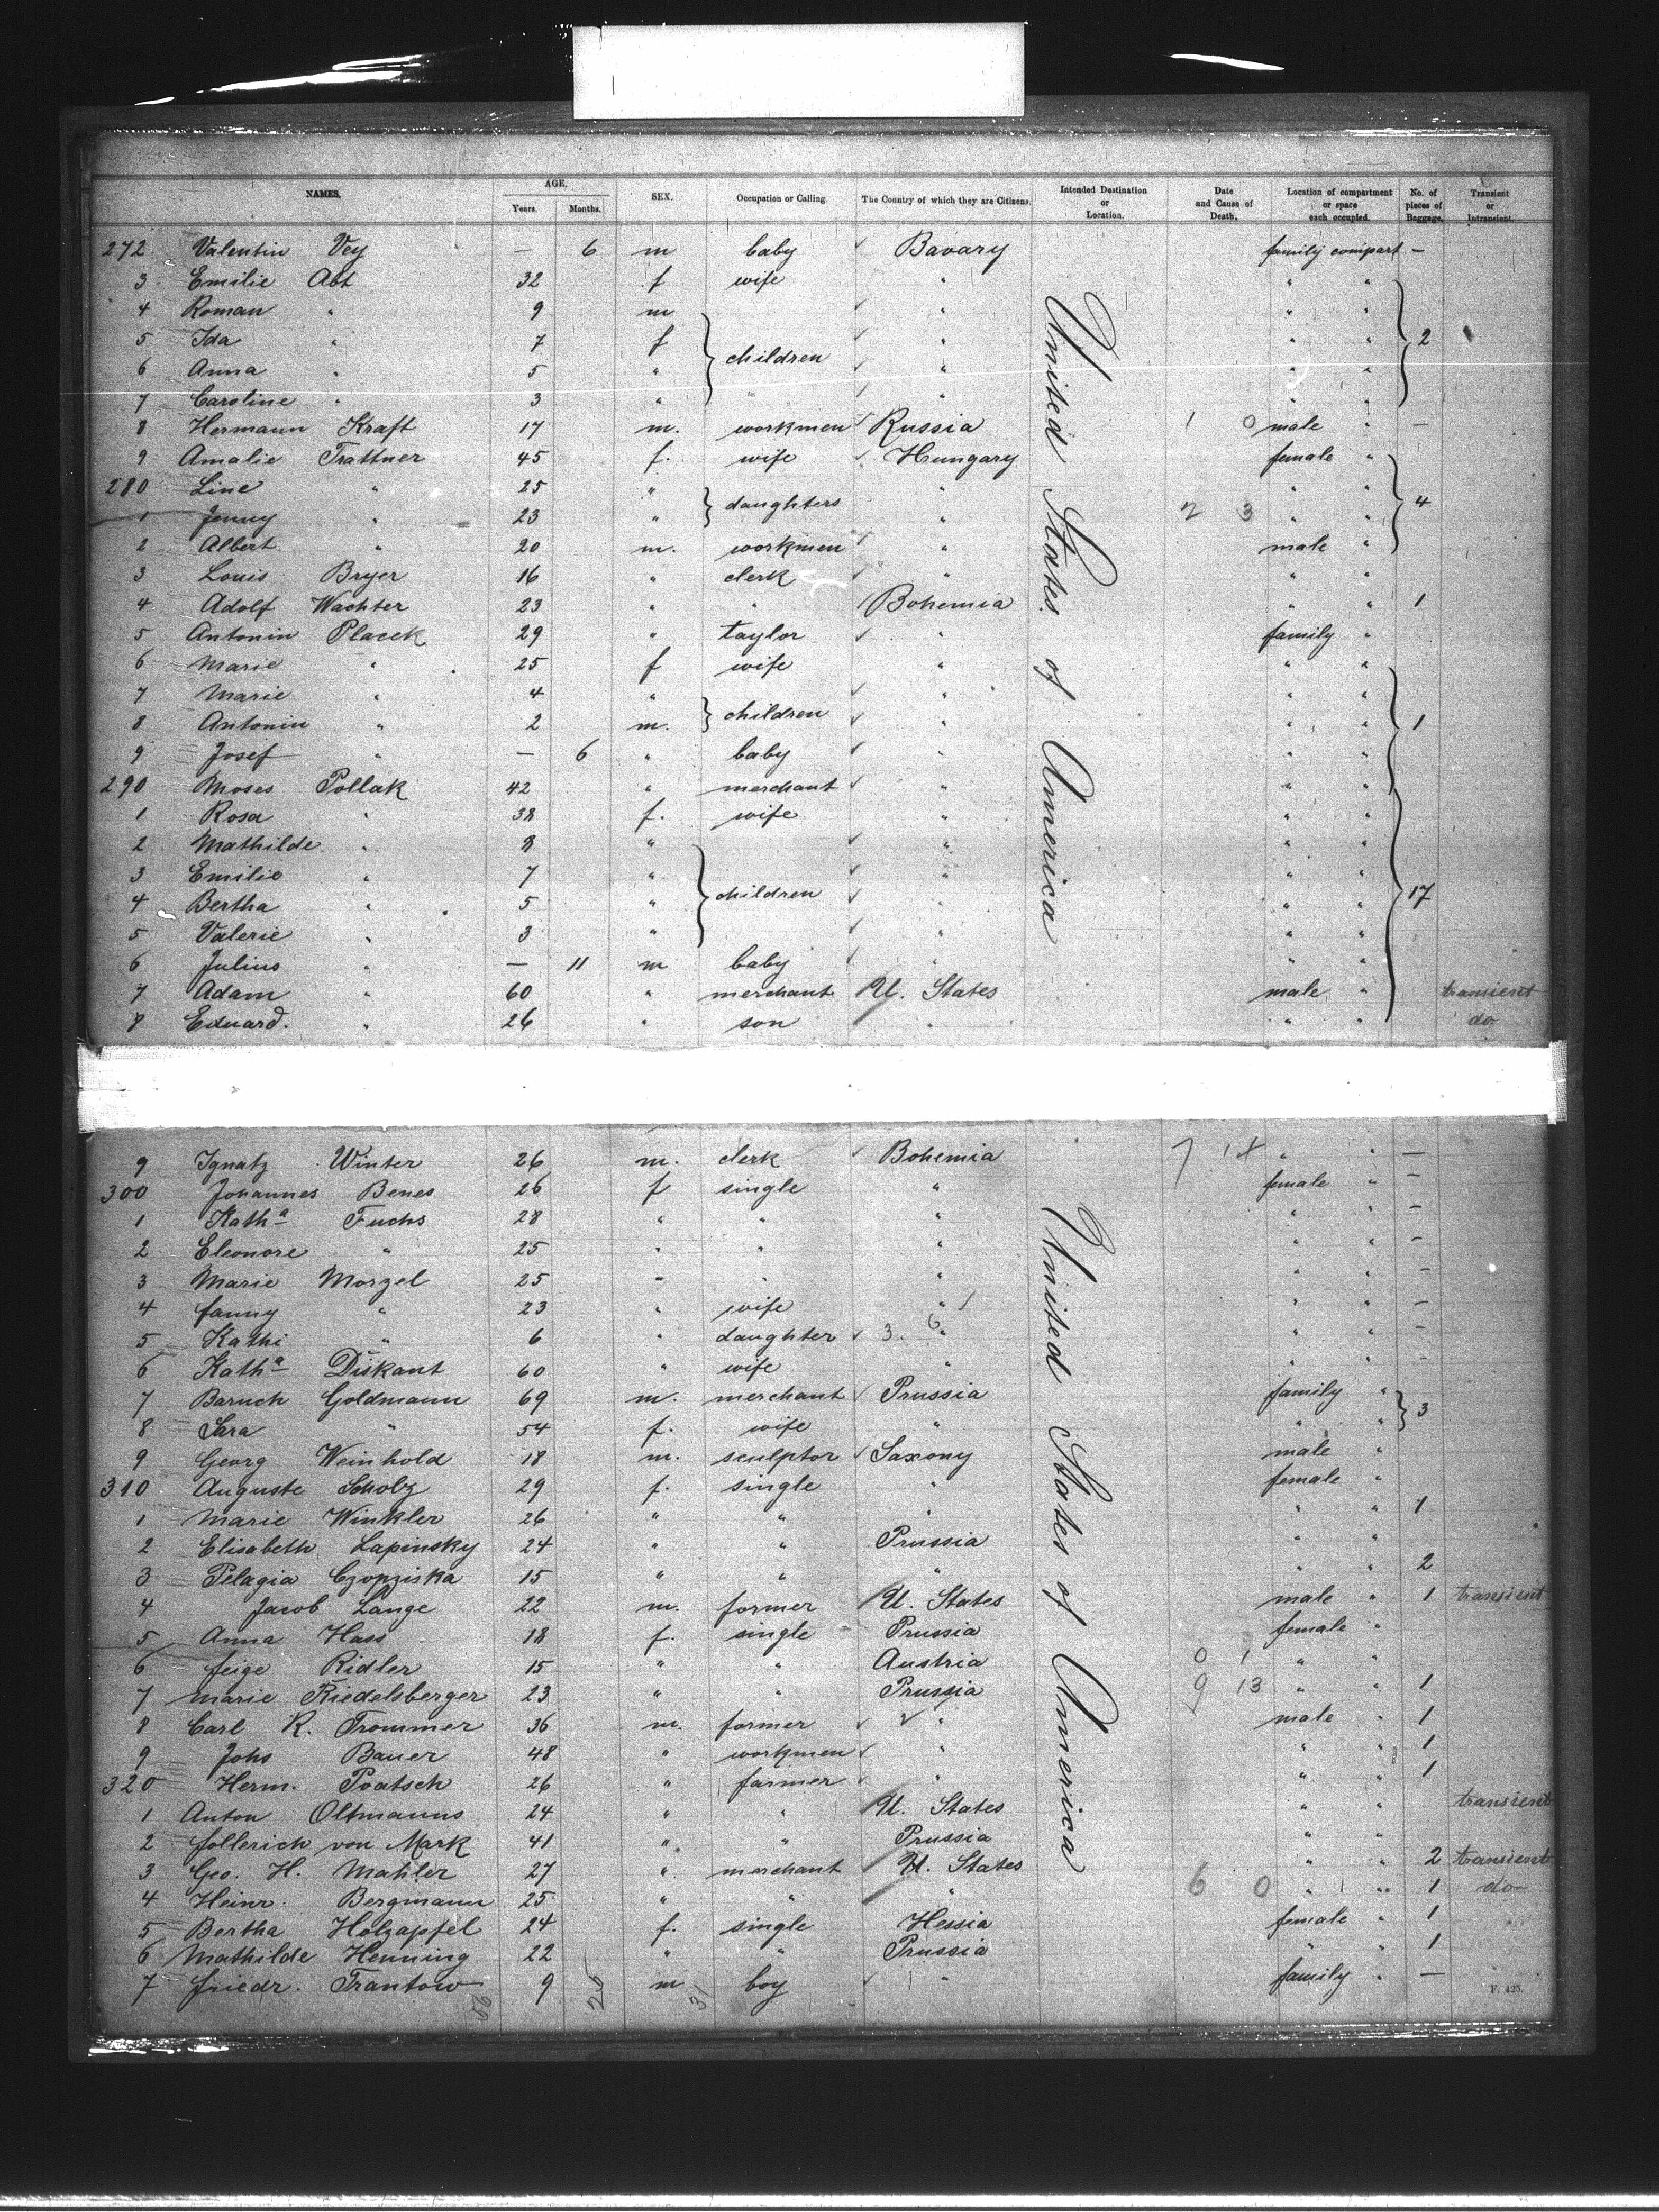 NAMES. AGE. Years. Months. SEX. Occupation or Calling The Country of which they are Citizens. Intended Destination or Location. Date and Cause of Death. Location of compartment or space each occupied. No. of pieces of Baggage. Transient or Intransient.
272 Valentin Vey — 6 m baby Bavary family compart —
3 Emilie Abt 32 f wife " " "
4 Roman " 9 m " " "
5 Ida " 7 f children " " " 2
6 Anna " 5 " " " "
7 Caroline " 3 " " " "
8 Hermann Kraft 17 m. workmen Russia 1 0 male " —
9 Amalie Trattner 45 f. wife Hungary female "
280 Line " 25 " daughters " " " 4
1 Jenny " 23 " " 2 3 " "
2 Albert " 20 m. workmen " male "
3 Louis Bryer 16 " clerk " " "
4 Adolf Wachter 23 " " Bohemia " " 1
5 Antonin Placek 29 " taylor " family "
6 Marie " 25 f wife " " "
7 Marie " 4 " children " " "
8 Antonin " 2 m. " " " 1
9 Josef " — 6 " baby " " "
290 Moses Pollak 42 " merchant " " "
1 Rosa " 38 f. wife " " "
2 Mathilde " 8 " " " "
3 Emilie " 7 " children " " "
4 Bertha " 5 " " " " 17
5 Valerie " 3 " " " "
6 Julius " — 11 m baby " " "
7 Adam " 60 " merchant U. States male " transient
8 Eduard. " 26 " son " " " do
United States of America
9 Ignatz Winter 26 m. clerk Bohemia " " —
300 Johannes Benes 26 f single " female " —
1 Kath<sup>a</sup> Fuchs 28 " " " " " —
2 Eleonore " 25 " " " " " —
3 Marie Morzel 25 " " " " " —
4 fanny " 23 " wife " " " —
5 Kathi " 6 " daughter 3. 6 " " " —
6 Kath<sup>a</sup> Diskant 60 " wife " " " —
7 Baruch Goldmann 69 m. merchant Prussia family " 3
8 Sara " 54 f. wife " " "
9 Georg Weinhold 18 m. sculptor Saxony male "
310 Auguste Scholz 29 f. single " female "
1 Marie Winkler 26 " " " " " 1
2 Elisabeth Lapinsky 24 " " Prussia " "
3 Pelagia Czopziska 15 " " " " " 2
4 Jacob Lange 22 m. former U. States male " 1 transient
5 Anna Hass 18 f. single Prussia female "
6 feige Ridler 15 " " Austria 0 1 " "
7 Marie Riedelsberger 23 " " Prussia 9 13 " " 1
8 Carl R. Trommer 36 m. former " male " 1
9 Johs Bauer 48 " workmen " " " 1
320 Herm. Poatsch 26 " farmer " " " 1
1 Anton Oltmanns 24 " " U. States " " transient
2 follerich von Mark 41 " " Prussia " "
3 Geo. H. Mahler 27 " merchant U. States " " 2 transient
4 Heinr. Bergmann 25 " " " 6 0 " " 1 do
5 Bertha Holzapfel 24 f. single Hessia female " 1
6 Mathilde Henning 22 " " Prussia " " 1
7 friedr. Trantow 9 m boy " family " —
United States of America
F. 425.